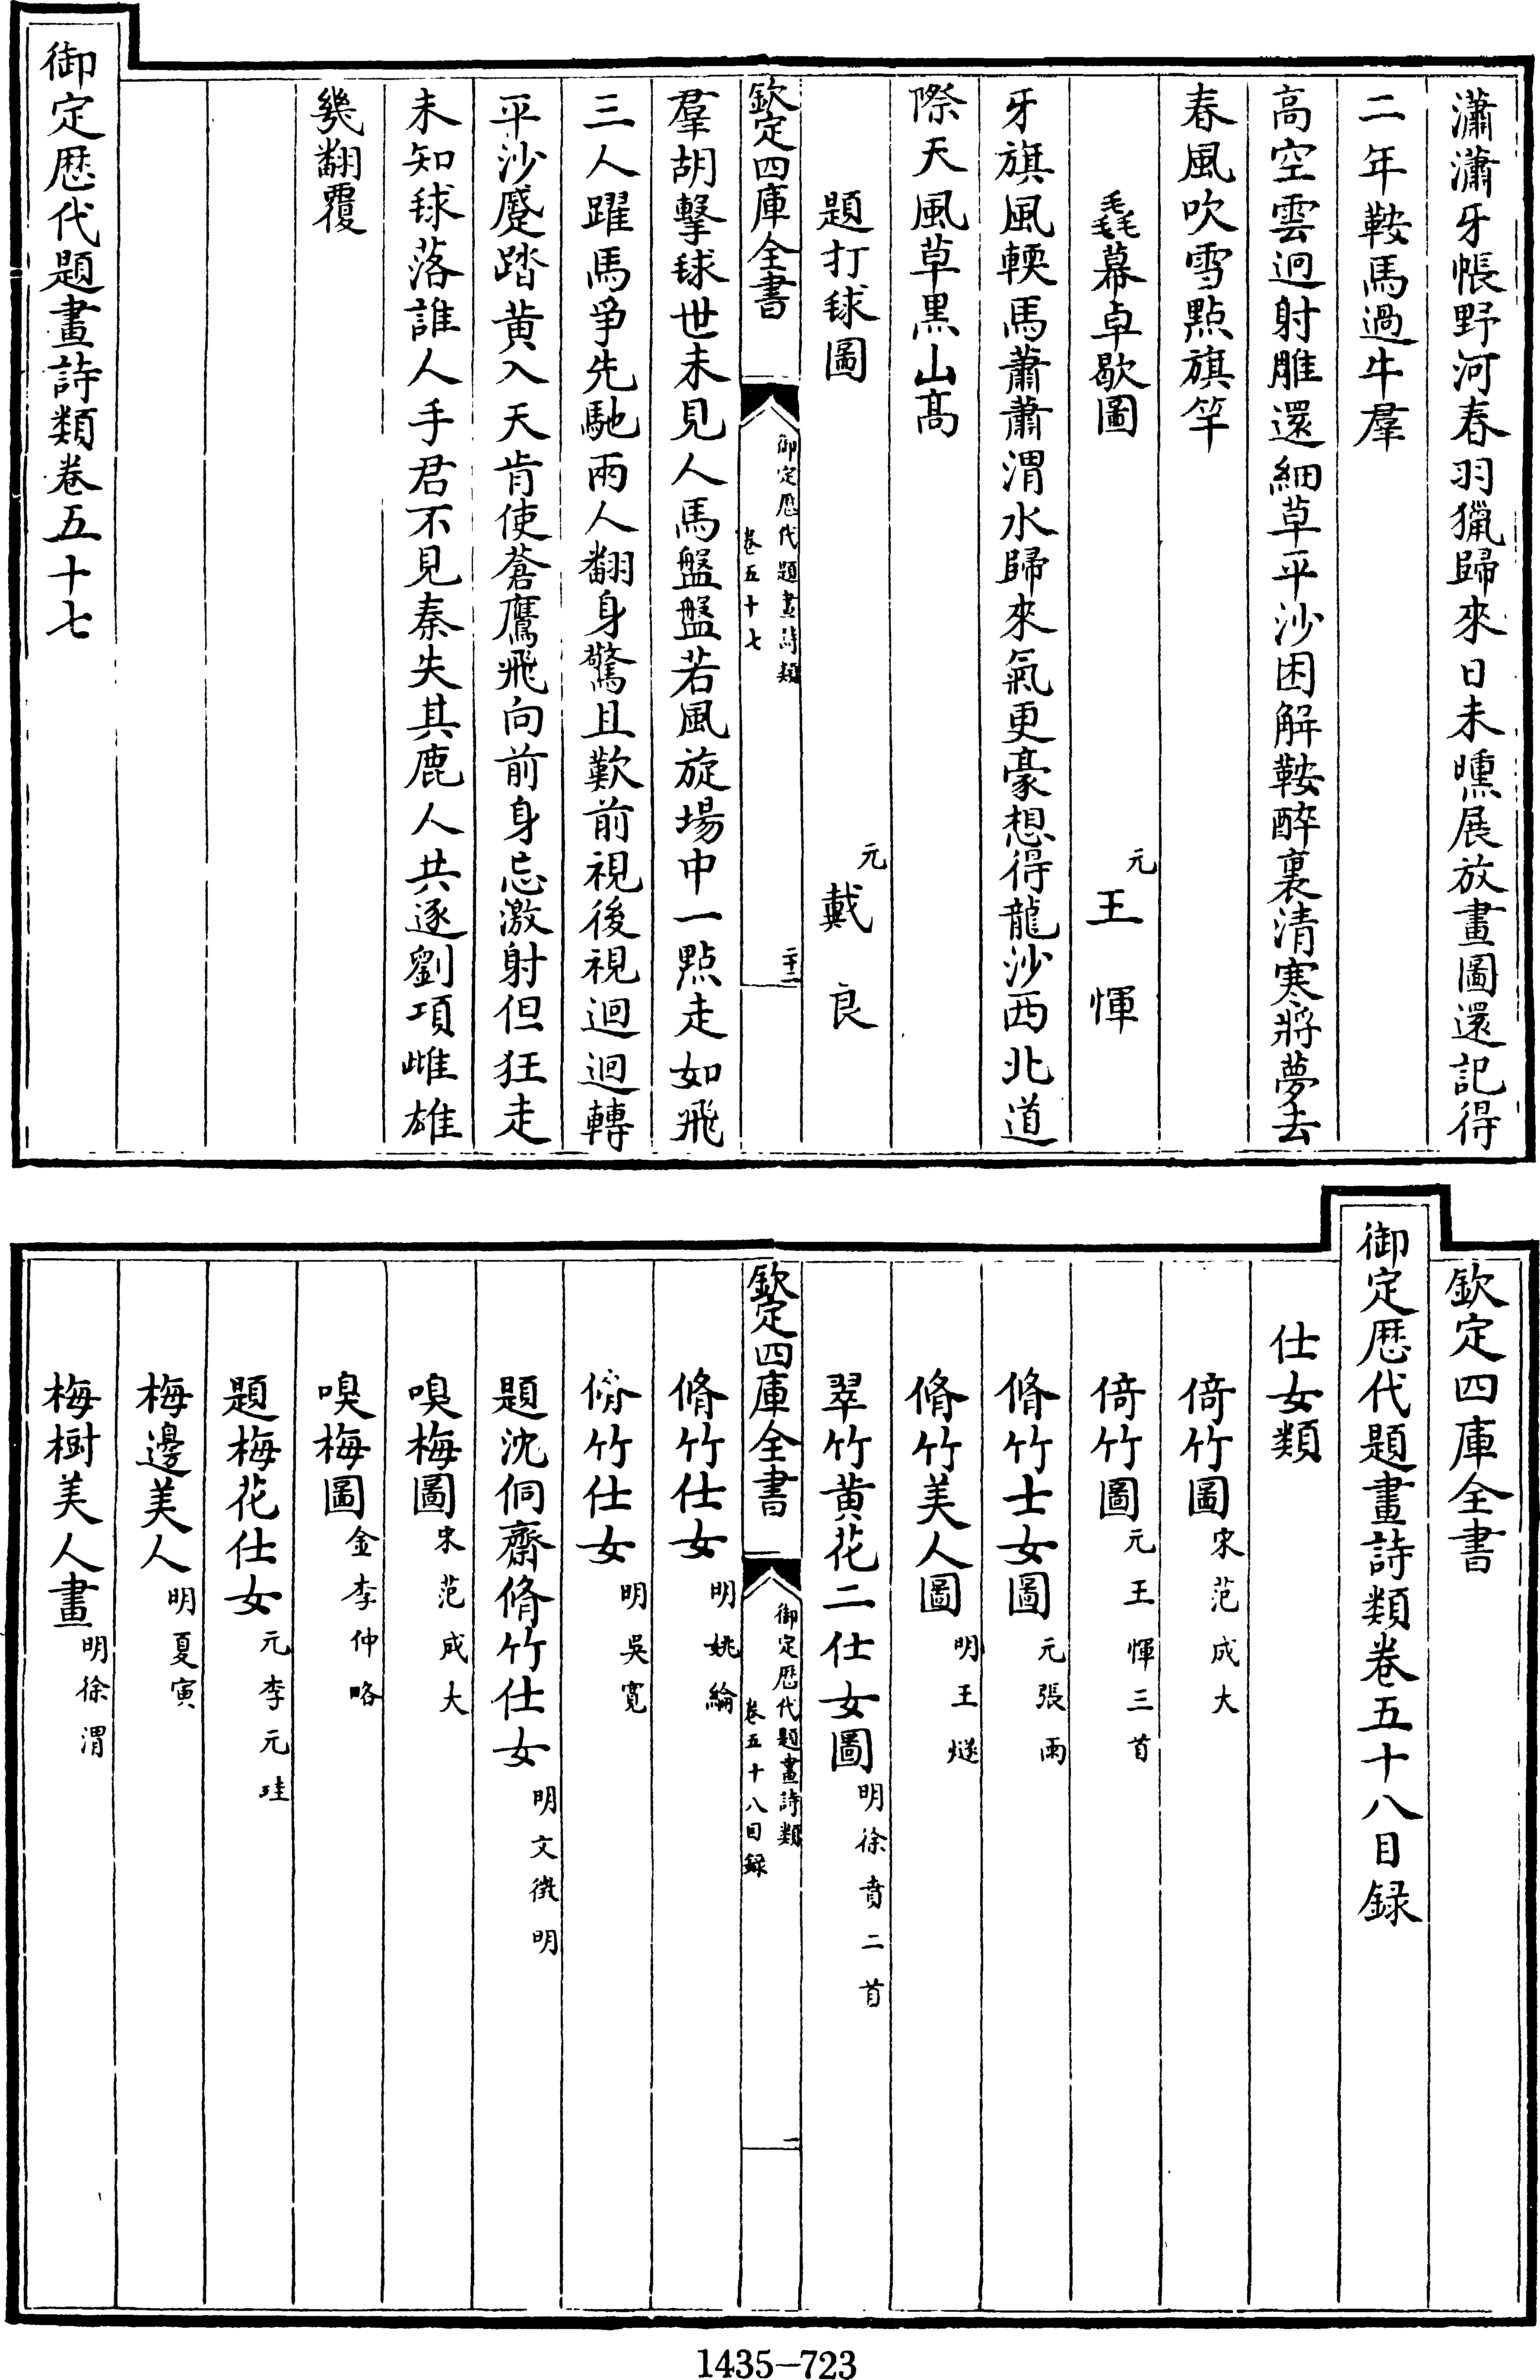 瀟瀟牙帳野河春羽獵歸來日未曛展放畫圖還記得
二年鞍馬過牛羣
高空雲迥射雕還細草平沙困解鞍醉裏清寒將夢去
春風吹雪點旗竿
毳幕卓歇圖 元 王惲
牙旗風輭馬蕭蕭渭水歸來氣更豪想得龍沙西北道
際天風草黑山高
題打球圖 元 戴良
欽定四庫全書 御定歴代題畫詩類 卷五十七 二十二
羣胡擊球世未見人馬盤盤若風旋場中一點走如飛
三人躍馬爭先馳兩人翻身驚且歎前視後視迴迴轉
平沙蹙踏黄入天肯使蒼鷹飛向前身忘激射但狂走
未知球落誰人手君不見秦失其鹿人共逐劉項雌雄
幾翻覆
御定歴代題畫詩類卷五十七
欽定四庫全書
御定歴代題畫詩類卷五十八目録
仕女類
倚竹圖 宋范成大
倚竹圖 元王惲三首
脩竹士女圖 元張雨
脩竹美人圖 明王燧
翠竹黄花二仕女圖 明徐賁二首
欽定四庫全書 御定歴代題畫詩類 卷五十八目録 一
脩竹仕女 明姚綸
脩竹仕女 明吳寬
題沈侗齋脩竹仕女 明文徴明
嗅梅圖 宋范成大
嗅梅圖 金李仲略
題梅花仕女 元李元珪
梅邊美人 明夏寅
梅樹美人畫 明徐渭
1435-723